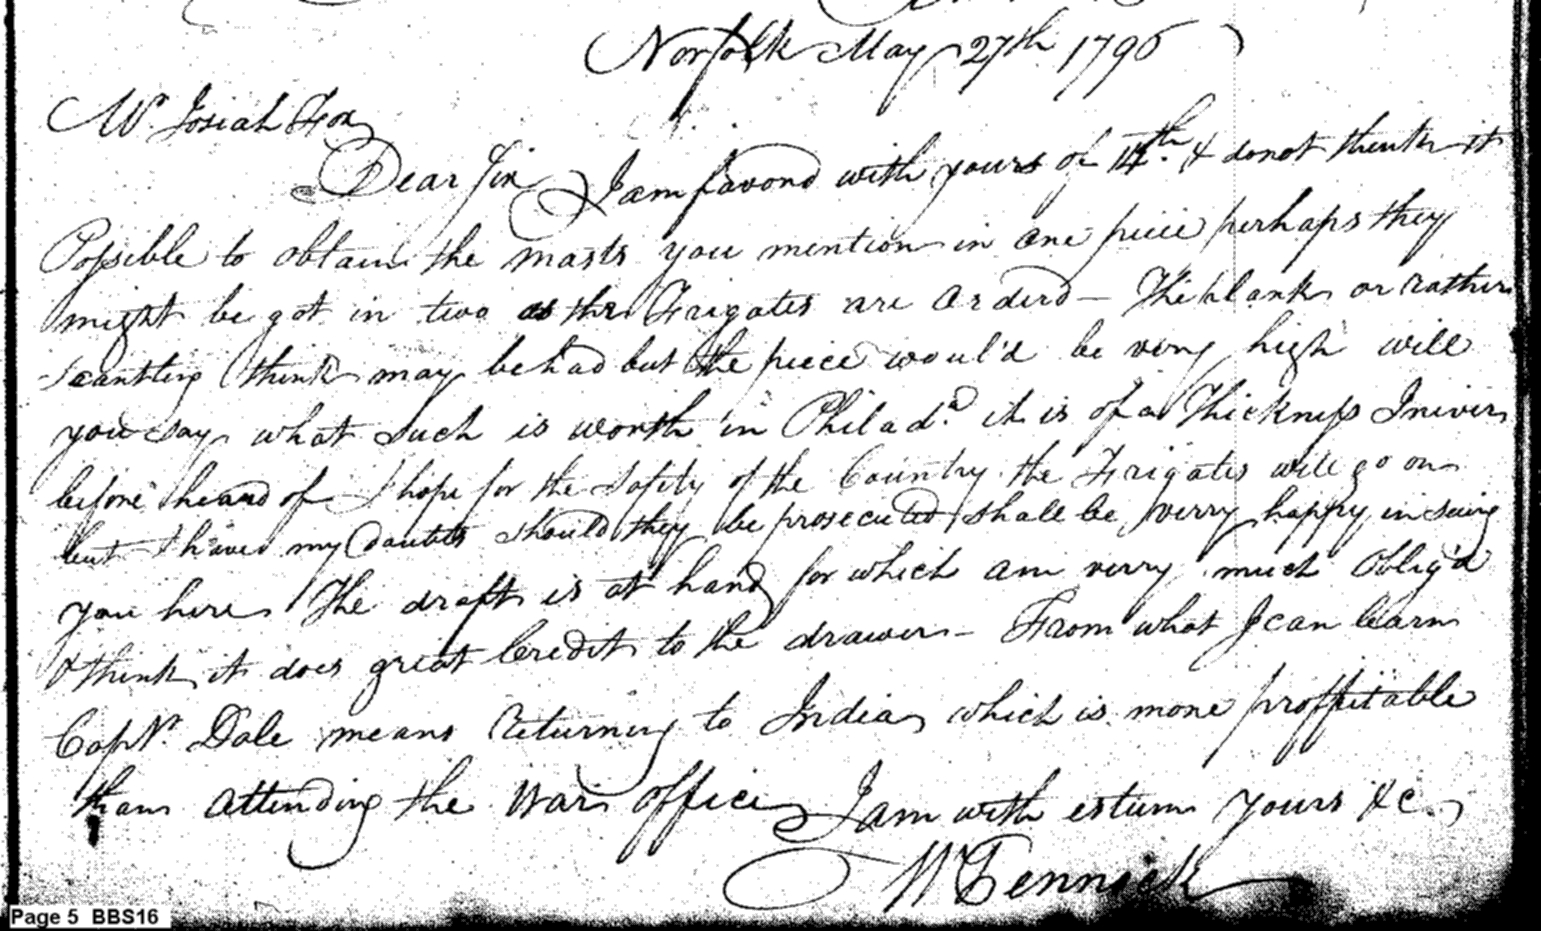 Norfolk May 27th 1796
Mr. Josiah Fox
Dear Sir I am favord with yours of 14th. & do not think it
Possible to obtain the masts you mention in one piece perhaps they
might be got in two as the Frigates are orderd – The plank or rather
scantling I think may be had but the piece would'd be very high will
you say what such is worth in Philada. it is of a Thickness I never
before heard of I hope for the Safety of the Country the Frigates will go on
but I have my doubts should they be prosecuted I shall be verry happy in seeing
you here The draft is at hand for which am verry much Oblig'd
& think it does great Credit to the drawer – From what I can learn
Captn. Dale means returning to India, which is more proffitable
than attending the War office I am with esteem yours &c.
W Pennock
Page 5 BBS16